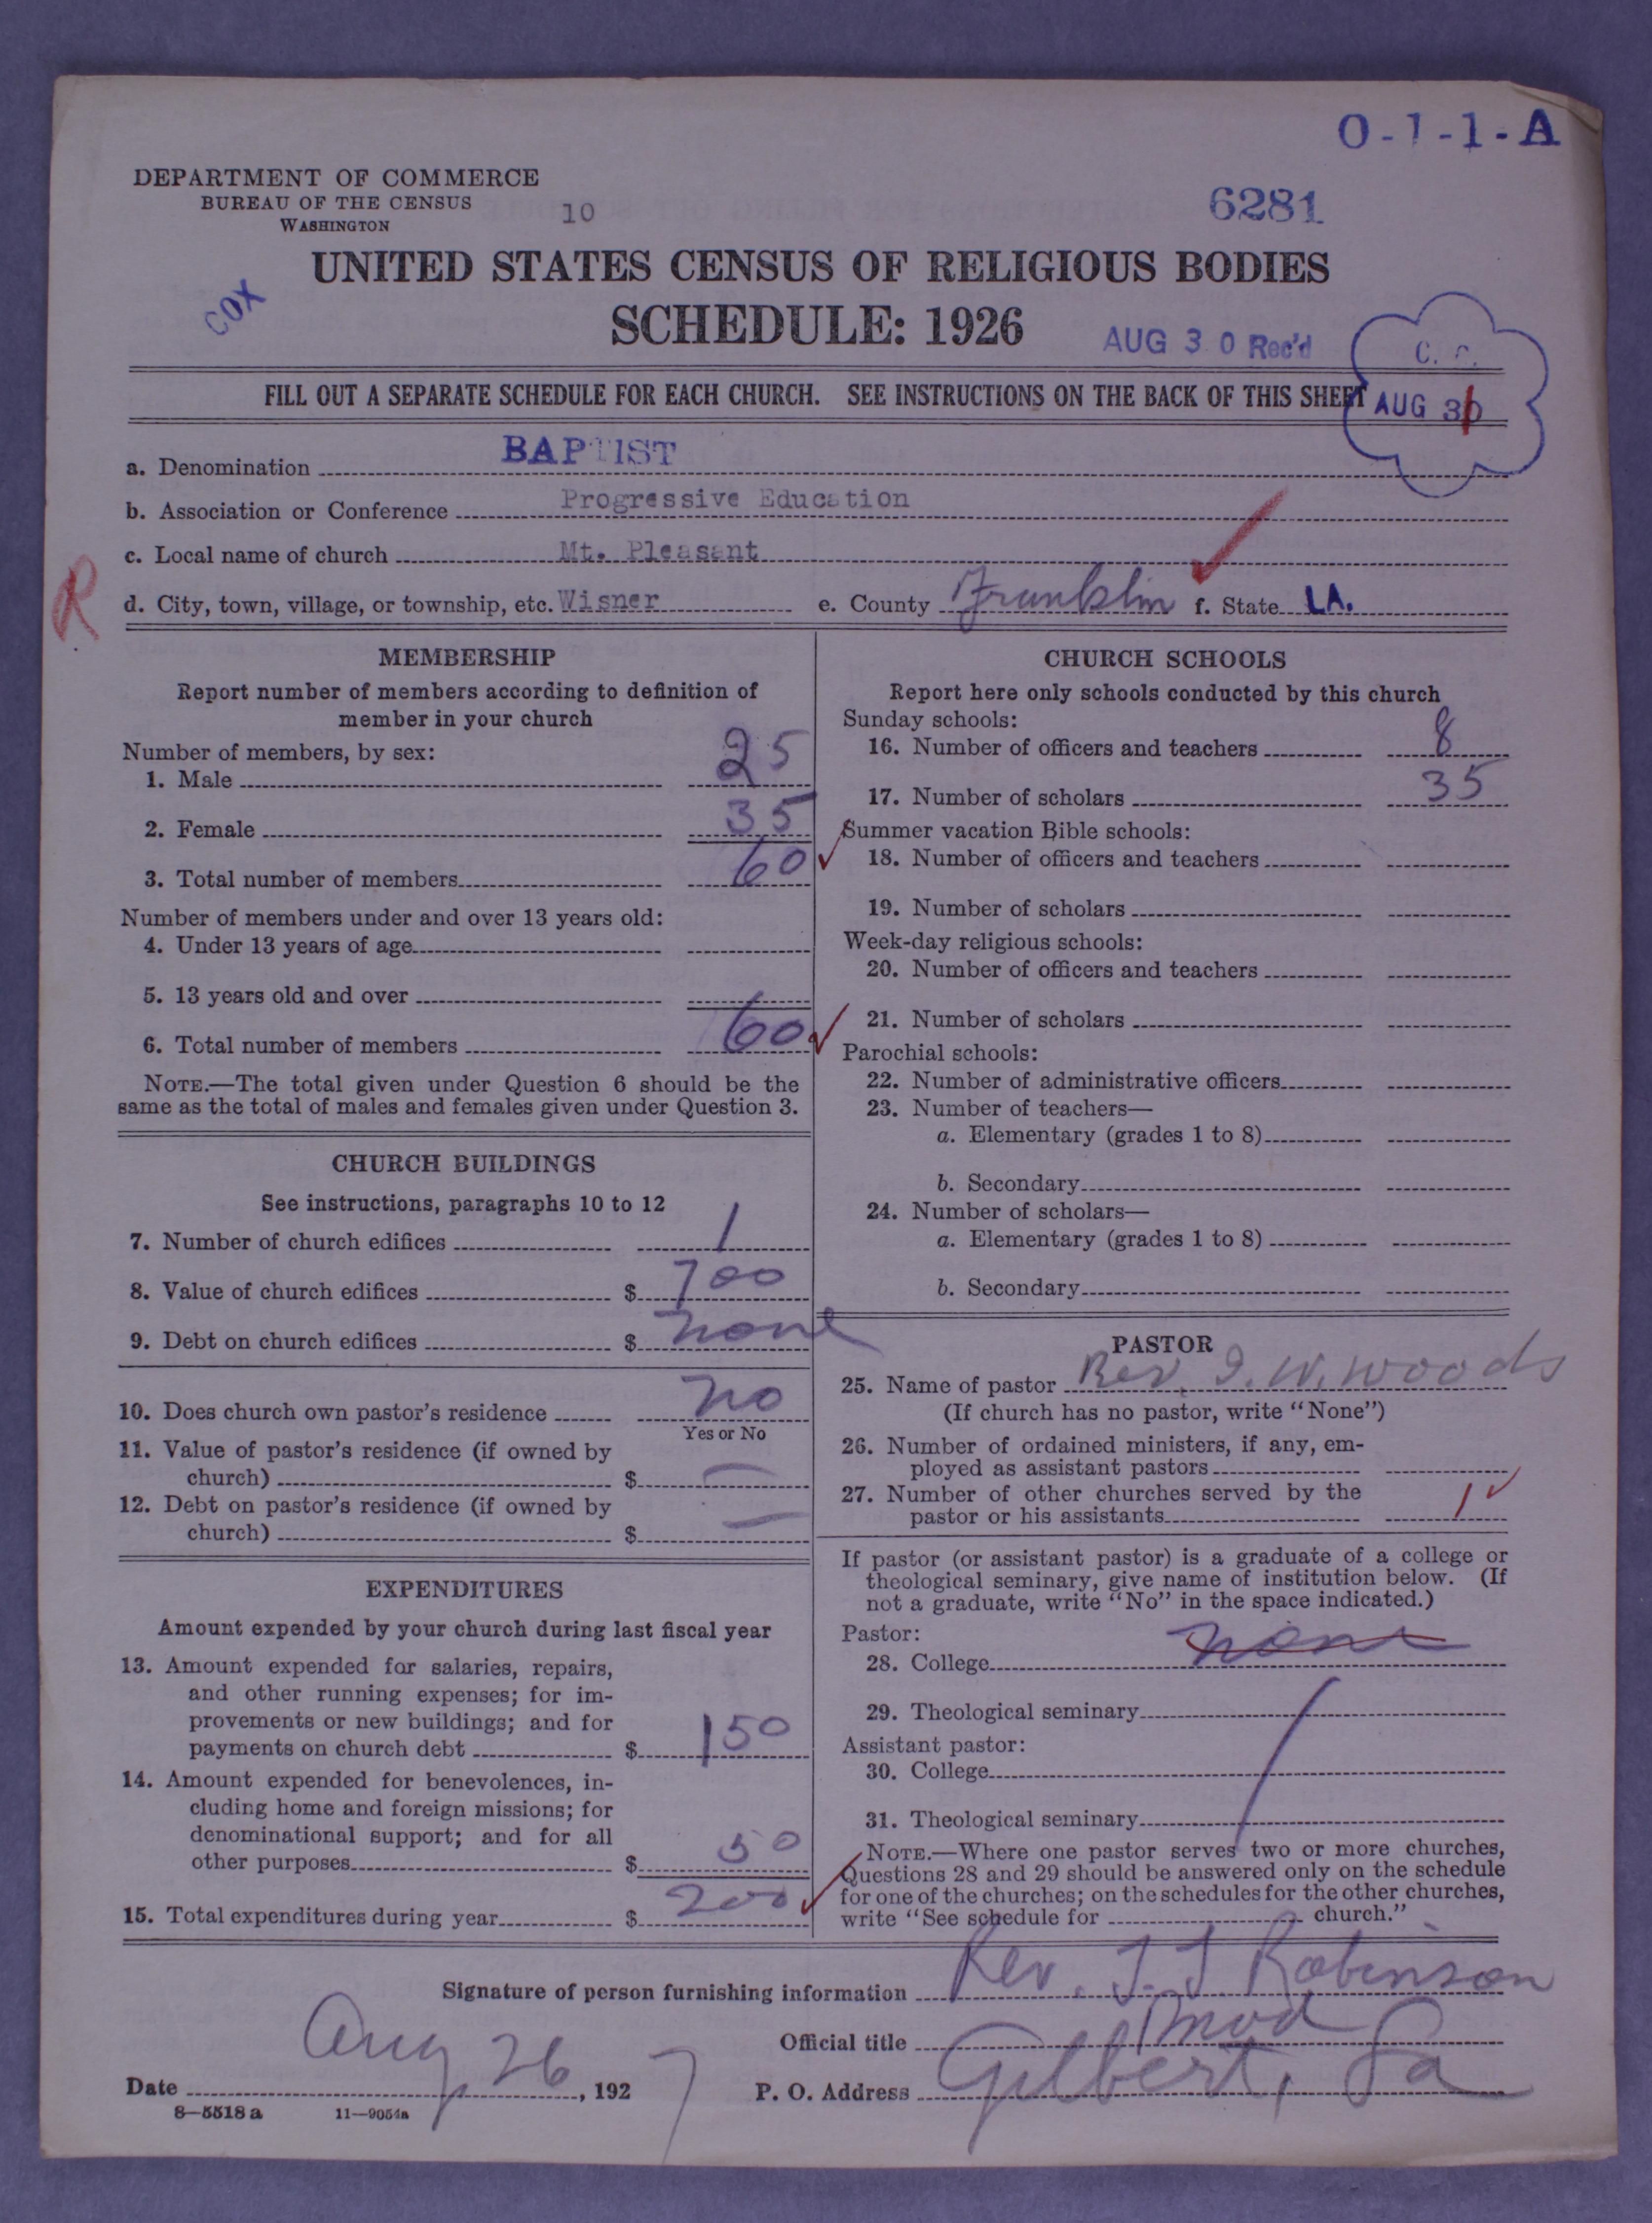 O-1-1-A
DEPARTMENT OF COMMERCE
BUREAU OF THE CENSUS
WASHINGTON
10
6281
UNITED STATES CENSUS OF RELIGIOUS BODIES
COX
SCHEDULE: 1926
AUG 30 Rec'd
C. C.
FILL OUT A SEPARATE SCHEDULE FOR EACH CHURCH. SEE INSTRUCTIONS ON THE BACK OF THIS SHEET
AUG 31
a. Denomination BAPTIST
b. Association or Conference Progressive Education
c. Local name of church Mt. Pleasant
R
d. City, town, village, or township, etc. Wisner e. County Franklin f. State LA.
MEMBERSHIP
Report number of members according to definition of
member in your church
Number of members, by sex:
1. Male 25
2. Female 35
3. Total number of members 60
Number of members under and over 13 years old:
4. Under 13 years of age
5. 13 years old and over
6. Total number of members 60
NOTE.—The total given under Question 6 should be the
same as the total of males and females given under Question 3.
CHURCH BUILDINGS
See instructions, paragraphs 10 to 12
7. Number of church edifices 1
8. Value of church edifices $ 700
9. Debt on church edifices $ none
10. Does church own pastor's residence no
Yes or No
11. Value of pastor's residence (if owned by
church) $ —
12. Debt on pastor's residence (if owned by
church) $ —
EXPENDITURES
Amount expended by your church during last fiscal year
13. Amount expended for salaries, repairs,
and other running expenses; for im-
provements or new buildings; and for
payments on church debt $ 150
14. Amount expended for benevolences, in-
cluding home and foreign missions; for
denominational support; and for all
other purposes $ 50
15. Total expenditures during year $ 200
CHURCH SCHOOLS
Report here only schools conducted by this church
Sunday schools:
16. Number of officers and teachers 8
17. Number of scholars 35
Summer vacation Bible schools:
18. Number of officers and teachers
19. Number of scholars
Week-day religious schools:
20. Number of officers and teachers
21. Number of scholars
Parochial schools:
22. Number of administrative officers
23. Number of teachers—
a. Elementary (grades 1 to 8)
b. Secondary
24. Number of scholars—
a. Elementary (grades 1 to 8)
b. Secondary
PASTOR
25. Name of pastor Rev. I. W. Woods
(If church has no pastor, write "None")
26. Number of ordained ministers, if any, em-
ployed as assistant pastors
27. Number of other churches served by the
pastor or his assistants 1
If pastor (or assistant pastor) is a graduate of a college or
theological seminary, give name of institution below. (If
not a graduate, write "No" in the space indicated.)
Pastor:
28. College none
29. Theological seminary
Assistant pastor:
30. College
31. Theological seminary
NOTE.—Where one pastor serves two or more churches,
Questions 28 and 29 should be answered only on the schedule
for one of the churches; on the schedules for the other churches,
write "See schedule for church."
Signature of person furnishing information Rev. J. J. Robinson
Official title Mod
Date Aug 26, 1927 P. O. Address Gilbert, La
8—5518 a 11—9054a